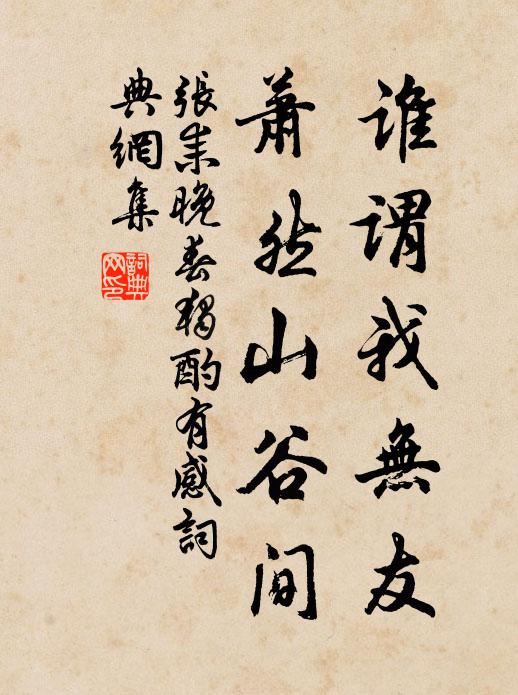 誰謂我無友
蕭然山谷間
張耒晚春獨酌有感詞
典網集
詞典網印